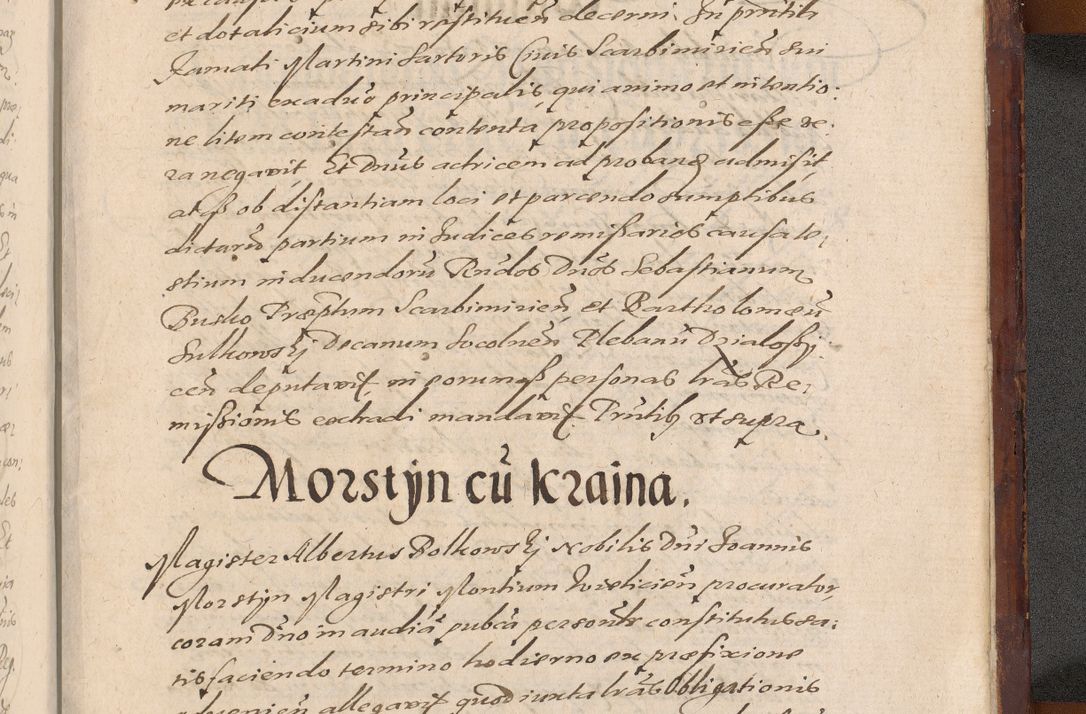 et dotalicium sibi restituen̄ decerni. In p̄ntili
famati Martini Sartoris Civis Scarbimirien̄ sui
mariti ex aduo principalis, qui animo et intentio:
ne litem contestan̄ contenta propositionis esse ve:
ra negavit, Et Dn̄us actricem ad proband admisit
atq3 ob distantiam loci et parcendo sumptibus
dictarū partium in Judices remissarios causa te:
stium inducendorū Rn̄dos Dn̄os Sebastianum
Busko Præp̄tum Scarbimirien̄, et Bartholomæū
Sulkowskj Decanum Socolnen̄ Plebanū Dzialossy:
cen̄ deputavit, in eorumq3 personas lr̄as Re:
missionis extradi mandavit. Pn̄tib9 ut supra.
Morstÿn cū kraina.
Magister Albertus Bolkowskj Nobilis Dn̄i Joannis
Morstÿn Magistri Montium Wielicien̄ procurator,
coram Dn̄o in audiā pub̄ca personl̄r constitutus sa:
tisfaciendo termino hodierno ex præfixione
advenien̄ allegavit quod iuxta lr̄as Obligationis